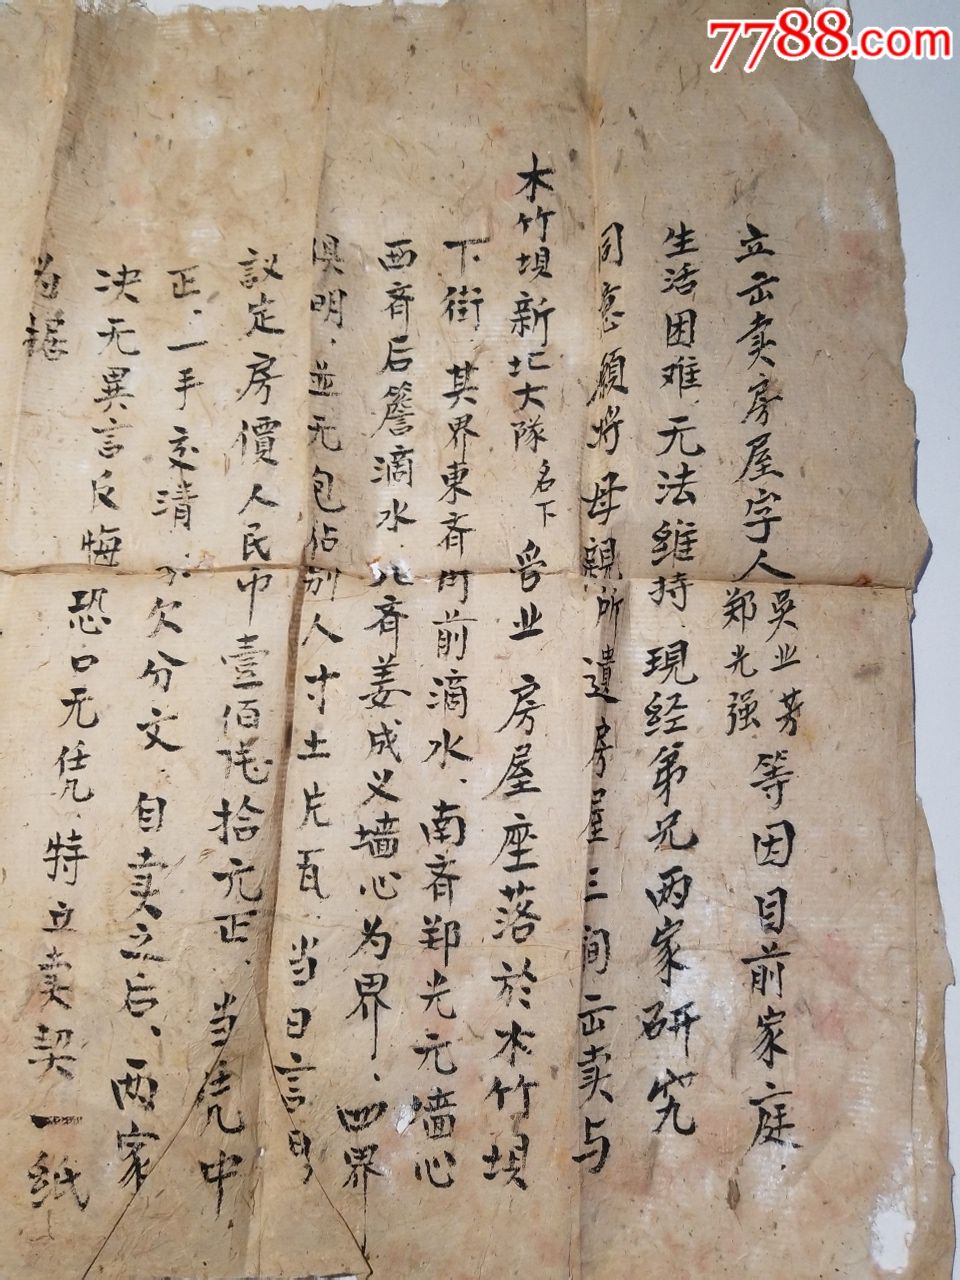 7788.com
立出卖房屋字人吴业芳郑光强等因目前家庭.
生活困难,无法维持.现经弟兄两家研究
同意願将母親所遺房屋三间出卖与
木竹坝新北大隊名下管业 房屋座落於木竹坝
下街.其界東齐街前滴水.南齐郑光元墙心
西齐后簷滴水.北齐姜成义墙心为界.四界
俱明.並无包佔别人寸土片瓦.当日言明
議定房價人民币壹佰伍拾元正.当凭中
正.一手交清.不欠分文.自卖之后、两家
决无異言反悔恐口无凭.特立卖契一纸
为据